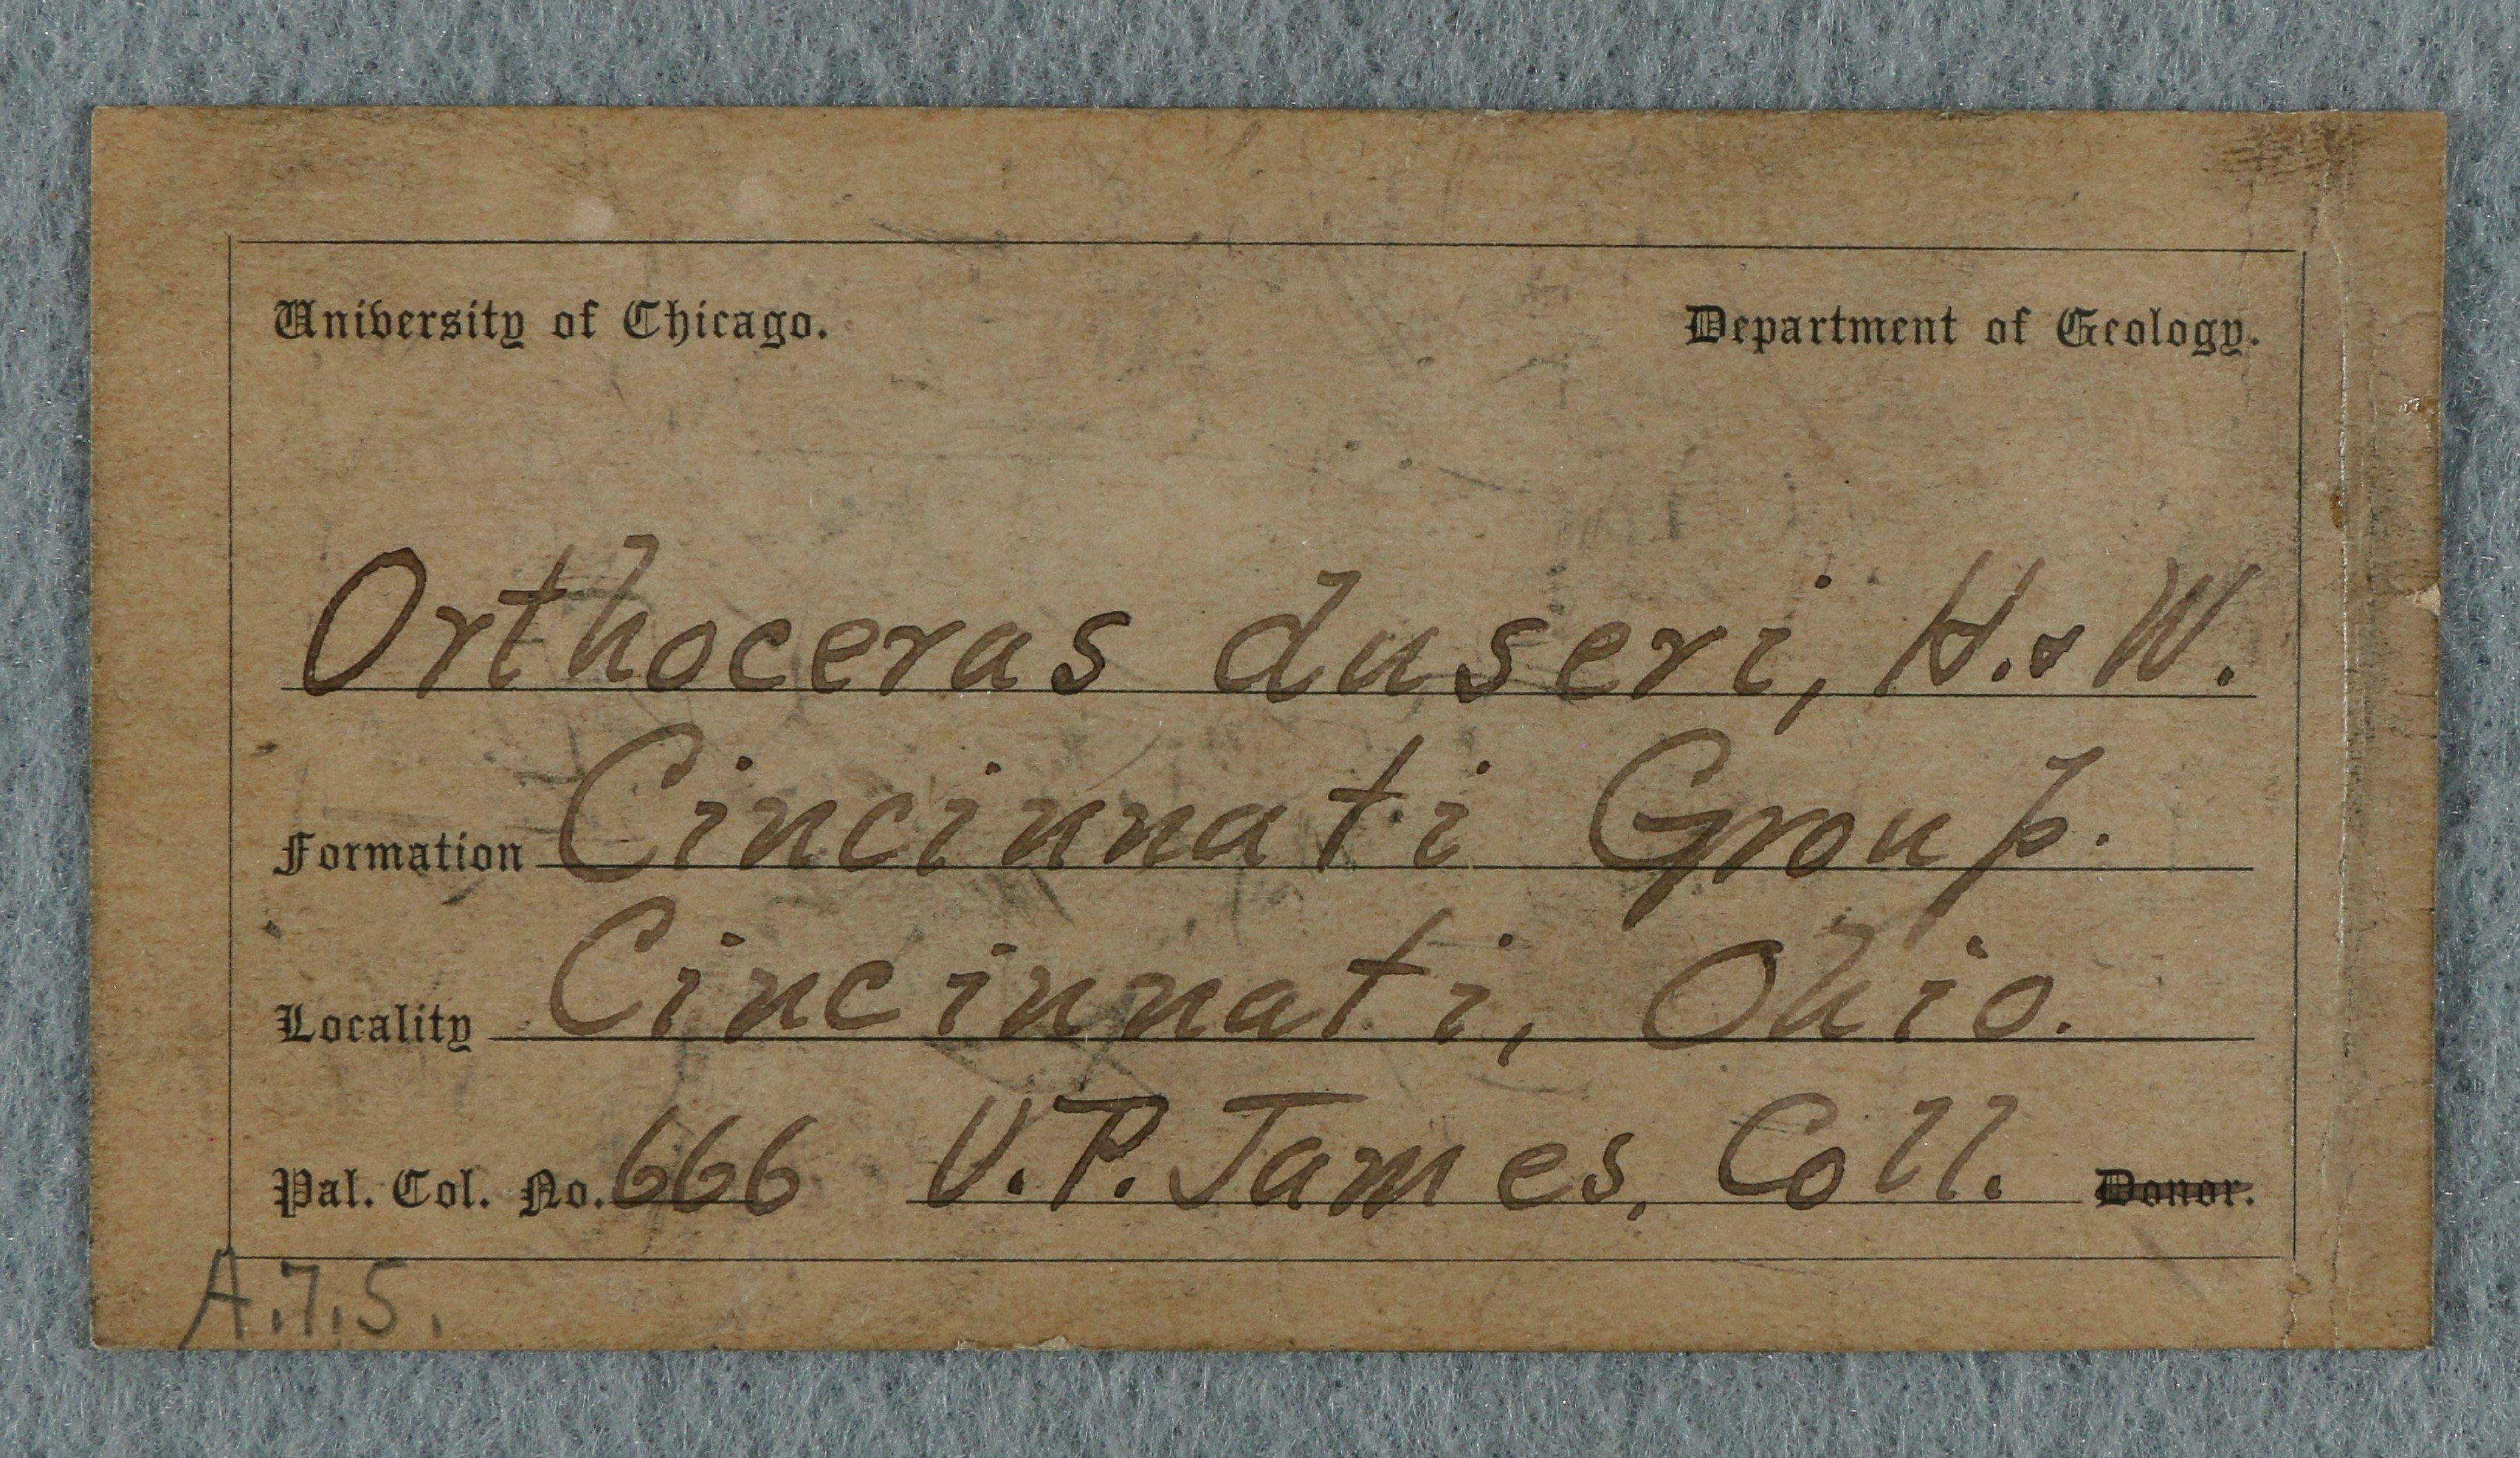 University of Chicago. Department of Geology.
Orthoceras duseri, H. & W.
Formation Cincinnati Group.
Locality Cincinnati, Ohio.
Pal. Col. No. 666 U.P. James, Coll. Donor.
A.7.5.